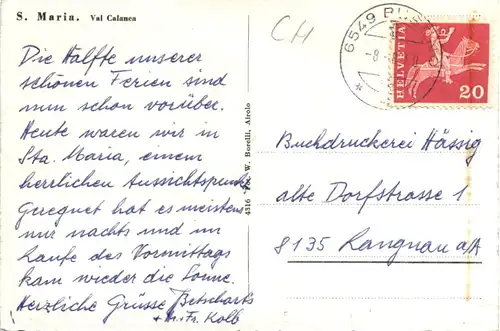 S. Maria. Val Calanca
Die Hälfte unserer
schönen Ferien sind
nun schon vorüber.
Heute waren wir in
Sta. Maria, einem
herrlichen Aussichtspunkt
Geregnet hat es meistens
nur nachts und im
Laufe des Vormittags
kam wieder die Sonne.
Herzliche Grüsse Betschart's
Kolb
4316 - W. Borelli, Airolo
CH
6549
HELVETIA
20
Buchdruckerei Hässig
alte Dorfstrasse 1
8135 Langnau a/A